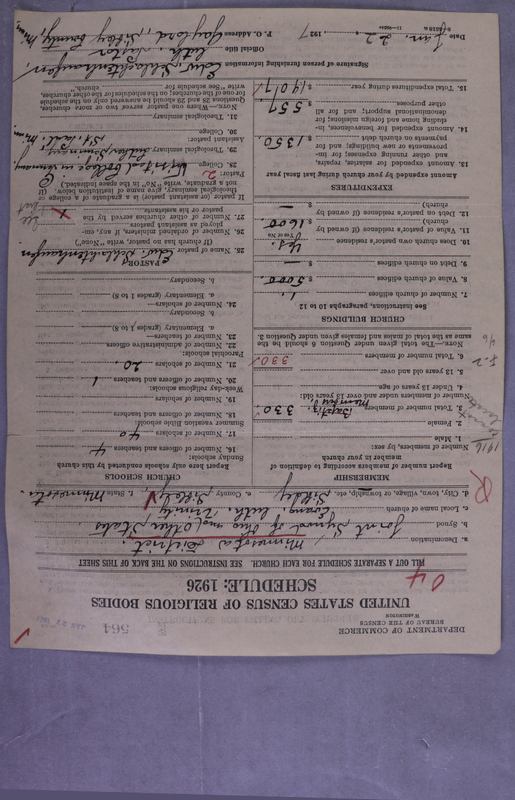 DEPARTMENT OF COMMERCE
BUREAU OF THE CENSUS
WASHINGTON
564
UNITED STATES CENSUS OF RELIGIOUS BODIES
SCHEDULE: 1926
04
FILL OUT A SEPARATE SCHEDULE FOR EACH CHURCH. SEE INSTRUCTIONS ON THE BACK OF THIS SHEET
a. Denomination Minnesota District.
b. Synod Joint Synod of Ohio and Other States
c. Local name of church Evang. Luth. Trinity
d. City, town, village, or township, etc. Sibley e. County Sibley f. State Minnesota
MEMBERSHIP
Report number of members according to definition of member in your church
Number of members, by sex:
1. Male
2. Female
3. Total number of members Baptiz. Members, 330
Number of members under and over 13 years old:
4. Under 13 years of age
5. 13 years old and over
6. Total number of members 330
NOTE.—The total given under Question 6 should be the same as the total of males and females given under Question 3.
CHURCH BUILDINGS
See instructions, paragraphs 10 to 12
7. Number of church edifices 1.
8. Value of church edifices $ 5000.
9. Debt on church edifices $ —
10. Does church own pastor's residence Yes.
(Yes or No)
11. Value of pastor's residence (if owned by church) $ 1600.
12. Debt on pastor's residence (if owned by church) $ —
EXPENDITURES
Amount expended by your church during last fiscal year
13. Amount expended for salaries, repairs, and other running expenses; for improvements or new buildings; and for payments on church debt $ 1350
14. Amount expended for benevolences, including home and foreign missions; for denominational support; and for all other purposes $ 557
15. Total expenditures during year $ 1907
CHURCH SCHOOLS
Report here only schools conducted by this church
Sunday schools:
16. Number of officers and teachers 4
17. Number of scholars 40
Summer vacation Bible school:
18. Number of officers and teachers
19. Number of scholars
Week-day religious schools:
20. Number of officers and teachers 1
21. Number of scholars 20.
Parochial schools:
22. Number of administrative officers
23. Number of teachers—
a. Elementary (grades 1 to 8)
b. Secondary
24. Number of scholars—
a. Elementary (grades 1 to 8)
b. Secondary
PASTOR
25. Name of pastor Edw. Schlachtenhaufen
(If church has no pastor, write "None")
26. Number of ordained ministers, if any, employed as assistant pastors
27. Number of other churches served by this pastor or his assistants.
If pastor (or assistant pastor) is a graduate of a college or theological seminary, give name of institution below. (If not a graduate, write "No" in the space indicated.)
Pastor:
28. College
29. Theological seminary Luther Seminary, St. Paul, Minn.
Assistant pastor:
30. College
31. Theological seminary
NOTE.—When one pastor serves two or more churches, Questions 28 and 29 should be answered only on the schedule for one of the churches; on the schedules for the other churches, write "See schedule for church."
Signature of person furnishing information Edw. Schlachtenhaufen,
Official title Luth. Pastor
P. O. Address Gaylord, Sibley County, Minn.
Date Jan. 22. 1927